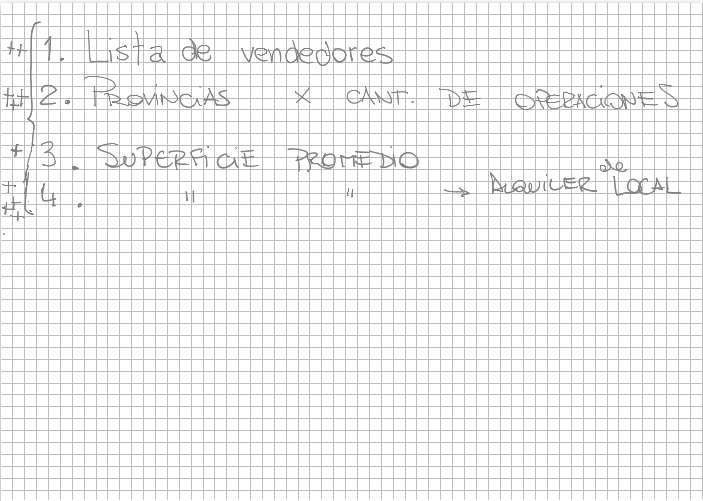 ++ 1. Lista de vendedores
+++ 2. PROVINCIAS X CANT. DE OPERACIONES
+ 3. SUPERFICIE PROMEDIO
4. " " → ALQUILER de LOCAL